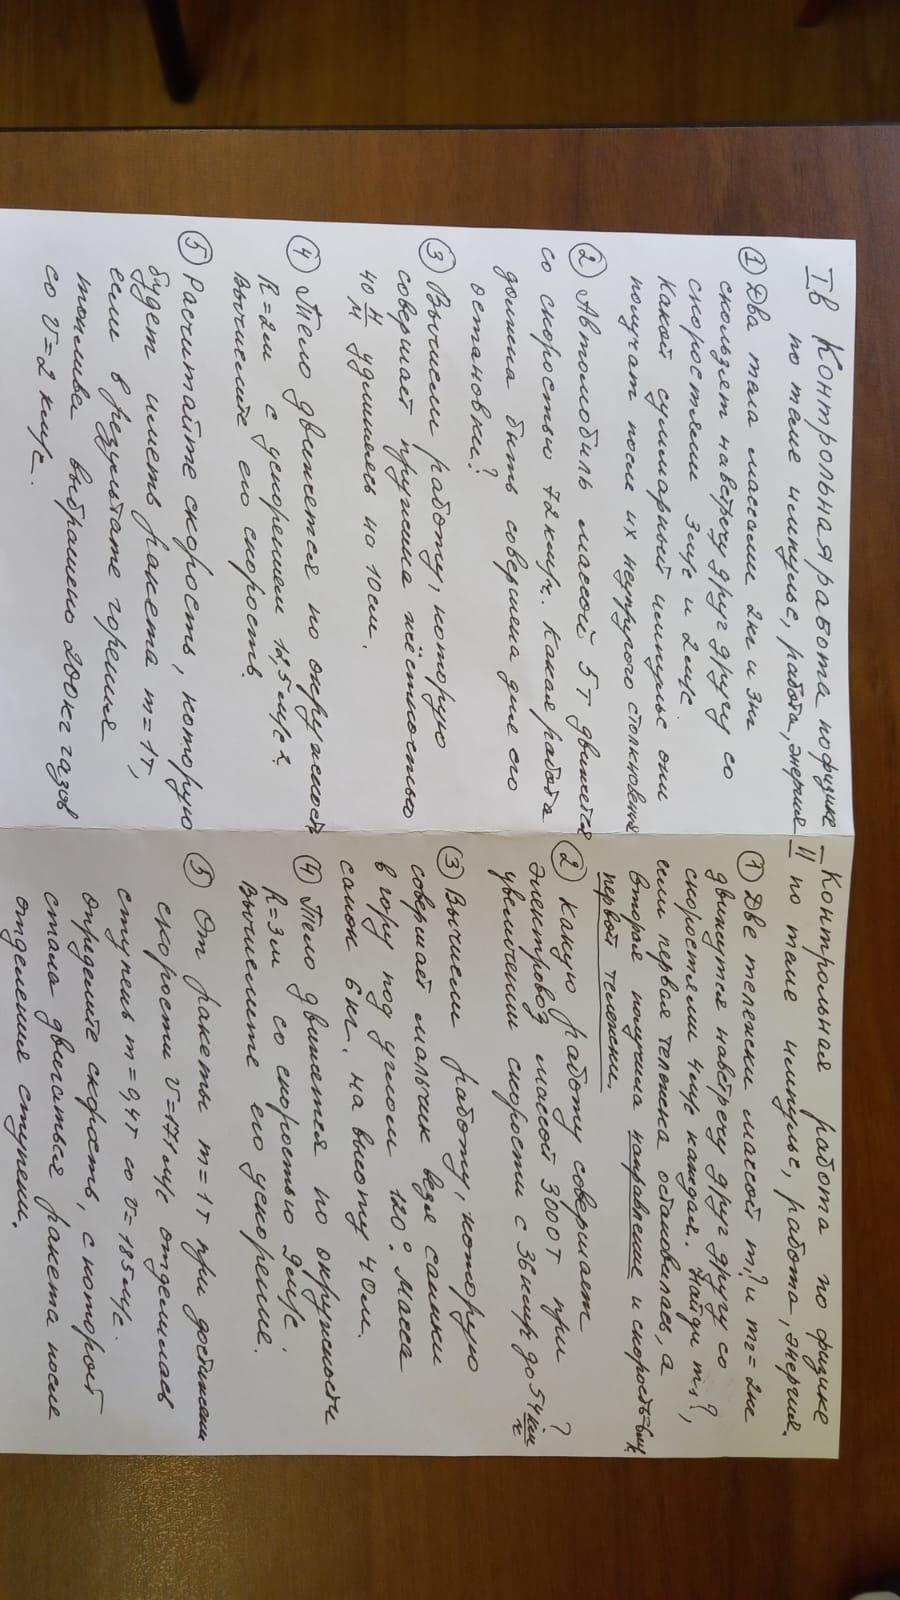 I в Контрольная работа по физике
по теме импульс, работа, энергия
① Два тела массами 2кг и 3кг
скользят навстречу друг другу со
скоростями 3м/с и 2м/с.
Какой суммарный импульс они
получат после их неупругого столкновения
② Автомобиль массой 5т движется
со скоростью 72км/ч. Какая работа
должна быть совершена для его
остановки?
③ Вычисли работу, которую
совершает пружина жёсткостью
40 Н/м удлиняясь на 10см.
④ Тело движется по окружности
R=2м с ускорением 12,5м/с².
Вычислите его скорость.
⑤ Расчитайте скорость, которую
будет иметь ракета m=1т,
если в результате горения
топлива выбрашено 200кг газов
со V=2км/с.
II Контрольная работа по физике
по теме импульс, работа, энергия.
① Две тележки массой m₁? и m₂=2кг
движутся навстречу друг другу со
скоростями 4м/с каждая. Найди m₁?,
если первая тележка остановилась, а
вторая получила направление и скорость
первой тележки.
② Какую работу совершает
электровоз массой 3000т при
увеличении скорости с 36км/ч до 54 км/ч?
③ Вычисли работу, которую
совершает мальчик везя санки
в гору под углом 120°. Масса
санок 6кг. на высоту 40м.
④ Тело движется по окружности
R=3м со скоростью 9м/с.
Вычислите его ускорение.
⑤ От ракеты m=1т при достижении
скорости V=171м/с отделилась
ступень m=0,4т со V=185м/с.
Определите скорость, с которой
стала двигаться ракета после
отделения ступени.